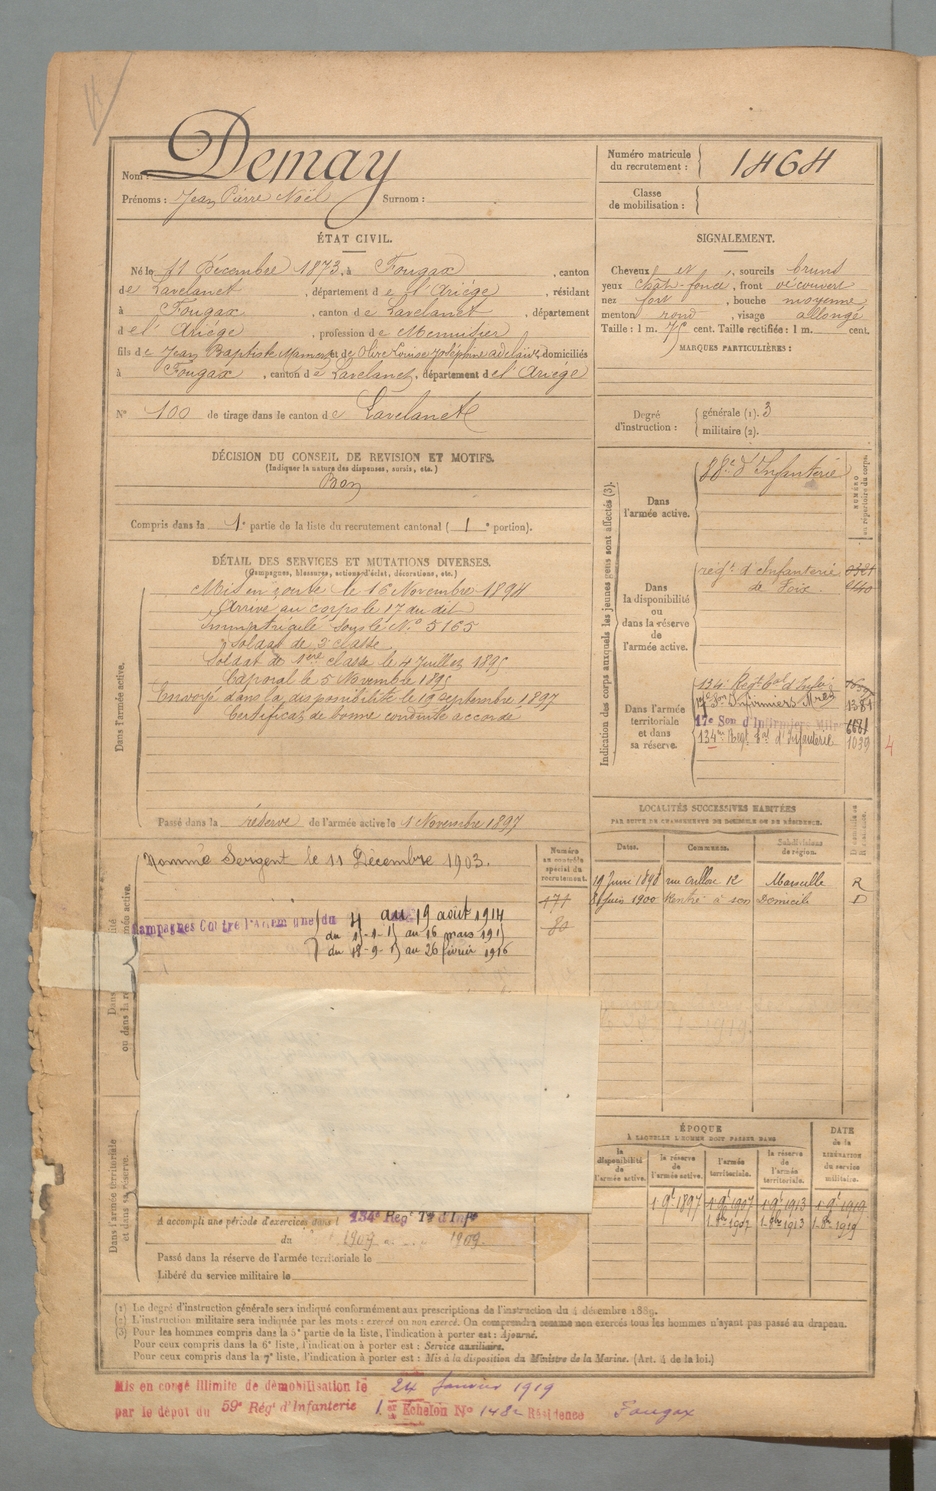 Nom : Demay
Prénoms : Jean Pierre Noël Surnom :
Numéro matricule du recrutement : 1464
Classe de mobilisation :
ÉTAT CIVIL.
Né le 11 Décembre 1873, à Fougax, canton
de Lavelanet, département de l'Ariége, résidant
à Fougax, canton de Lavelanet, département
de l'Ariége, profession de Menuisier
fils de Jean Baptiste et de Louise Joséphine domiciliés
à Fougax, canton de Lavelanet, département de l'Ariége
N° 100 de tirage dans le canton de Lavelanet
SIGNALEMENT.
Cheveux et, sourcils bruns
yeux chât-foncé, front découvert
nez fort, bouche moyenne,
menton rond, visage allongé
Taille : 1 m. 75 cent. Taille rectifiée : 1 m. cent.
MARQUES PARTICULIÈRES :
Degré d'instruction : générale (1). 3
militaire (2).
DÉCISION DU CONSEIL DE REVISION ET MOTIFS.
(Indiquer la nature des dispenses, sursis, etc.)
Bon
Compris dans la 1e partie de la liste du recrutement cantonal ( 1 e portion).
DÉTAIL DES SERVICES ET MUTATIONS DIVERSES.
(Campagnes, blessures, actions d'éclat, décorations, etc.)
Dans l'armée active.
Mis en route le 16 Novembre 1894
Arrivé au corps le 17 du dit
Immatriculé sous le N° 5165
Soldat de 2e classe.
Soldat de 1ère classe le 4 Juillet 1895
Caporal le 5 Novembre 1895
Envoyé dans la disponibilité le 19 septembre 1897
Certificat de bonne conduite accordé
Passé dans la réserve de l'armée active le 1 Novembre 1897
Indication des corps auxquels les jeunes gens sont affectés (3).
NUMÉRO au répertoire du corps.
Dans l'armée active. d'Infanterie
Dans la disponibilité ou dans la réserve de l'armée active.
regt d'Infanterie
de Foix.
Dans l'armée territoriale et dans sa réserve.
134e Regt tal d'Infie
17e Son Infirmiers Mres 1381
17e Son d'Infirmiers Mili
134e Regt Tal d'Infanterie 1039
4
LOCALITÉS SUCCESSIVES HABITÉES
PAR SUITE DE CHANGEMENTS DE DOMICILE OU DE RÉSIDENCE.
Dates. Communes. Subdivisions de région.
19 Juin 1898 12 Marseille R
1900 Rentré à son Domicile D
Numéro au contrôle spécial du recrutement.
171
80
Nommé Sergent le 11 Décembre 1903.
Campagnes Contre l'Allemagne du 4 au 19 août 1914
du 15-1-15 au 16 mars 1915
du 18-9-15 au 26 février 1916
ÉPOQUE
À LAQUELLE L'HOMME DOIT PASSER DANS
la disponibilité de l'armée active. la réserve de l'armée active. l'armée territoriale. la réserve de l'armée territoriale.
DATE de la LIBÉRATION du service militaire.
1 9t 1897 1 9t 1907 1 9t 1913 1 9t 1919
1-9bre 1907 1-9bre 1913 1-9bre 1919
Dans l'armée territoriale et dans sa réserve.
A accompli une période d'exercices dans l 134e Regt Tal d'Infie
du 1909 au 1909
Passé dans la réserve de l'armée territoriale le
Libéré du service militaire le
(1) Le degré d'instruction générale sera indiqué conformément aux prescriptions de l'instruction du 4 décembre 1889.
(2) L'instruction militaire sera indiquée par les mots : exercé ou non exercé. On comprendra comme non exercés tous les hommes n'ayant pas passé au drapeau.
(3) Pour les hommes compris dans la 5e partie de la liste, l'indication à porter est : Ajourné.
Pour ceux compris dans la 6e liste, l'indication à porter est : Service auxiliaire.
Pour ceux compris dans la 7e liste, l'indication à porter est : Mis à la disposition du Ministre de la Marine. (Art. 4 de la loi.)
Mis en congé illimité de démobilisation le 24 Janvier 1919
par le dépôt du 59e Régt d'Infanterie 1er Echelon N° 1482 Résidence Fougax